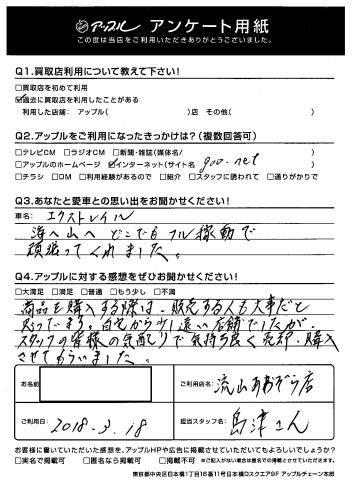 アップル アンケート用紙
この度は当店をご利用いただきありがとうございました。
Q1.買取店利用について教えて下さい!
□買取店を初めて利用
☑過去に買取店を利用したことがある
利用した店舗: アップル( )店 その他( )
Q2.アップルをご利用になったきっかけは?(複数回答可)
□テレビCM □ラジオCM □新聞・雑誌(媒体名/ )
□アップルのホームページ ☑インターネット(サイト名 goo.net )
□チラシ □DM □利用経験があるので □紹介 □スタッフに誘われて □通りがかりで
Q3.あなたと愛車との思い出をお聞かせください!
車名: エクストレイル
海へ山へどこでもフル稼動で
頑張ってくれました。
Q4.アップルに対する感想をぜひお聞かせください!
□大満足 □満足 □普通 □もう少し □不満
商品を購入する際は、販売する人も大事だと
思ってます。自宅から少し遠い店舗でしたが、
スタッフの皆様の気配りで気持ち良く売却、購入
させてもらいました。
お名前
ご利用店名: 流山おおぞら店
ご利用日 2018.3.18
担当スタッフ名: 島津さん
お客様に書いていただいた感想を、アップルHPや広告に掲載させていただいてもよろしいでしょうか?
□実名で掲載可 □匿名なら掲載可 □掲載不可 ※ご記入がない場合は匿名での掲載とさせていただきます。
東京都中央区日本橋1丁目16番11号日本橋Dスクエア9F アップルチェーン本部